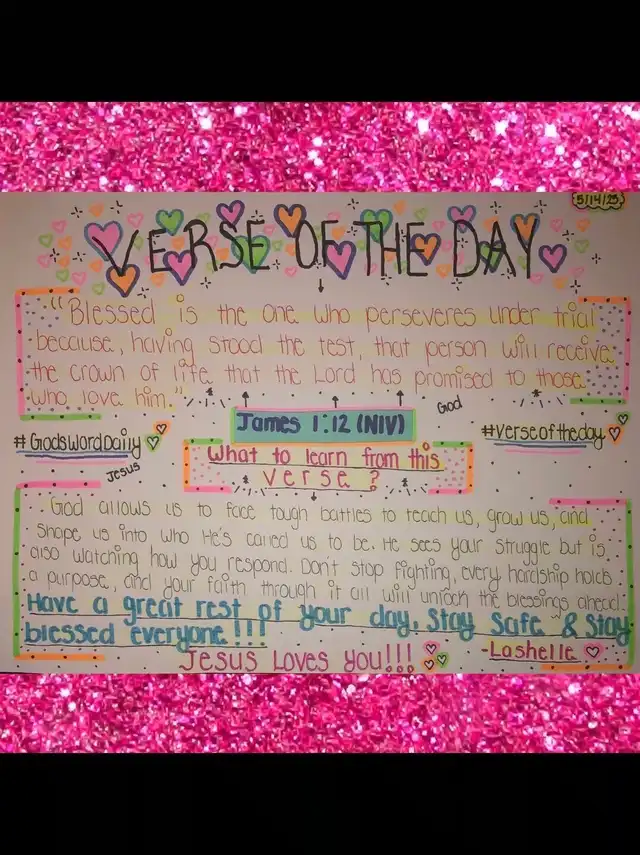 5/14/25
VERSE OF THE DAY
"Blessed is the one who perseveres under trial
because, having stood the test, that person will receive
the crown of life that the Lord has promised to those
who love him."
God
James 1:12 (NIV)
#GodsWordDaily
#verseoftheday
Jesus
What to learn from this
verse?
God allows us to face tough battles to teach us, grow us, and
shape us into who He's called us to be. He sees your struggle but is
also watching how you respond. Don't stop fighting, every hardship holds
a purpose, and your faith through it all will unlock the blessings ahead.
Have a great rest of your day, Stay Safe & Stay
blessed everyone!!!
-Lashelle
Jesus Loves You!!!